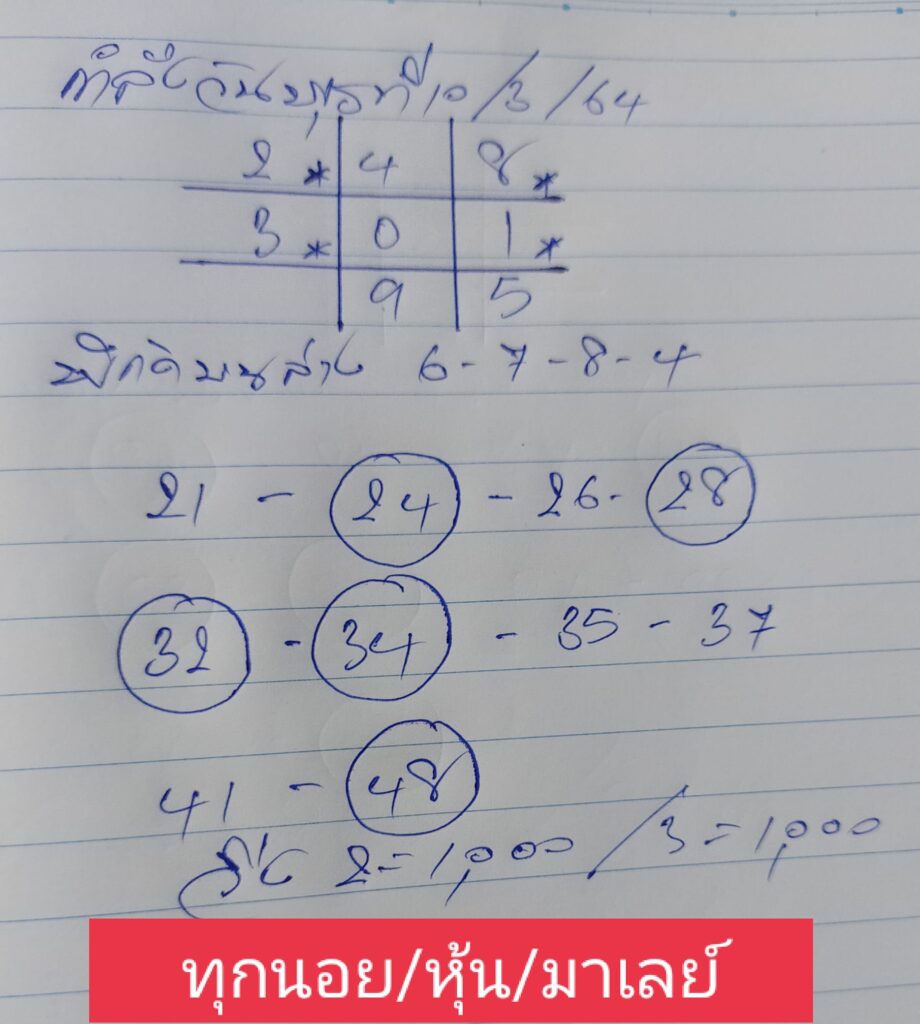 กำลังวันพุธที่ 10/3/64
2* 4 8*
3* 0 1*
9 5
ปักดิบนล่าง 6-7-8-4
21 - 24 - 26 - 28
32 - 34 - 35 - 37
41 - 48
วิ่ง 2=1,000 / 3=1,000
ทุกนอย/หุ้น/มาเลย์